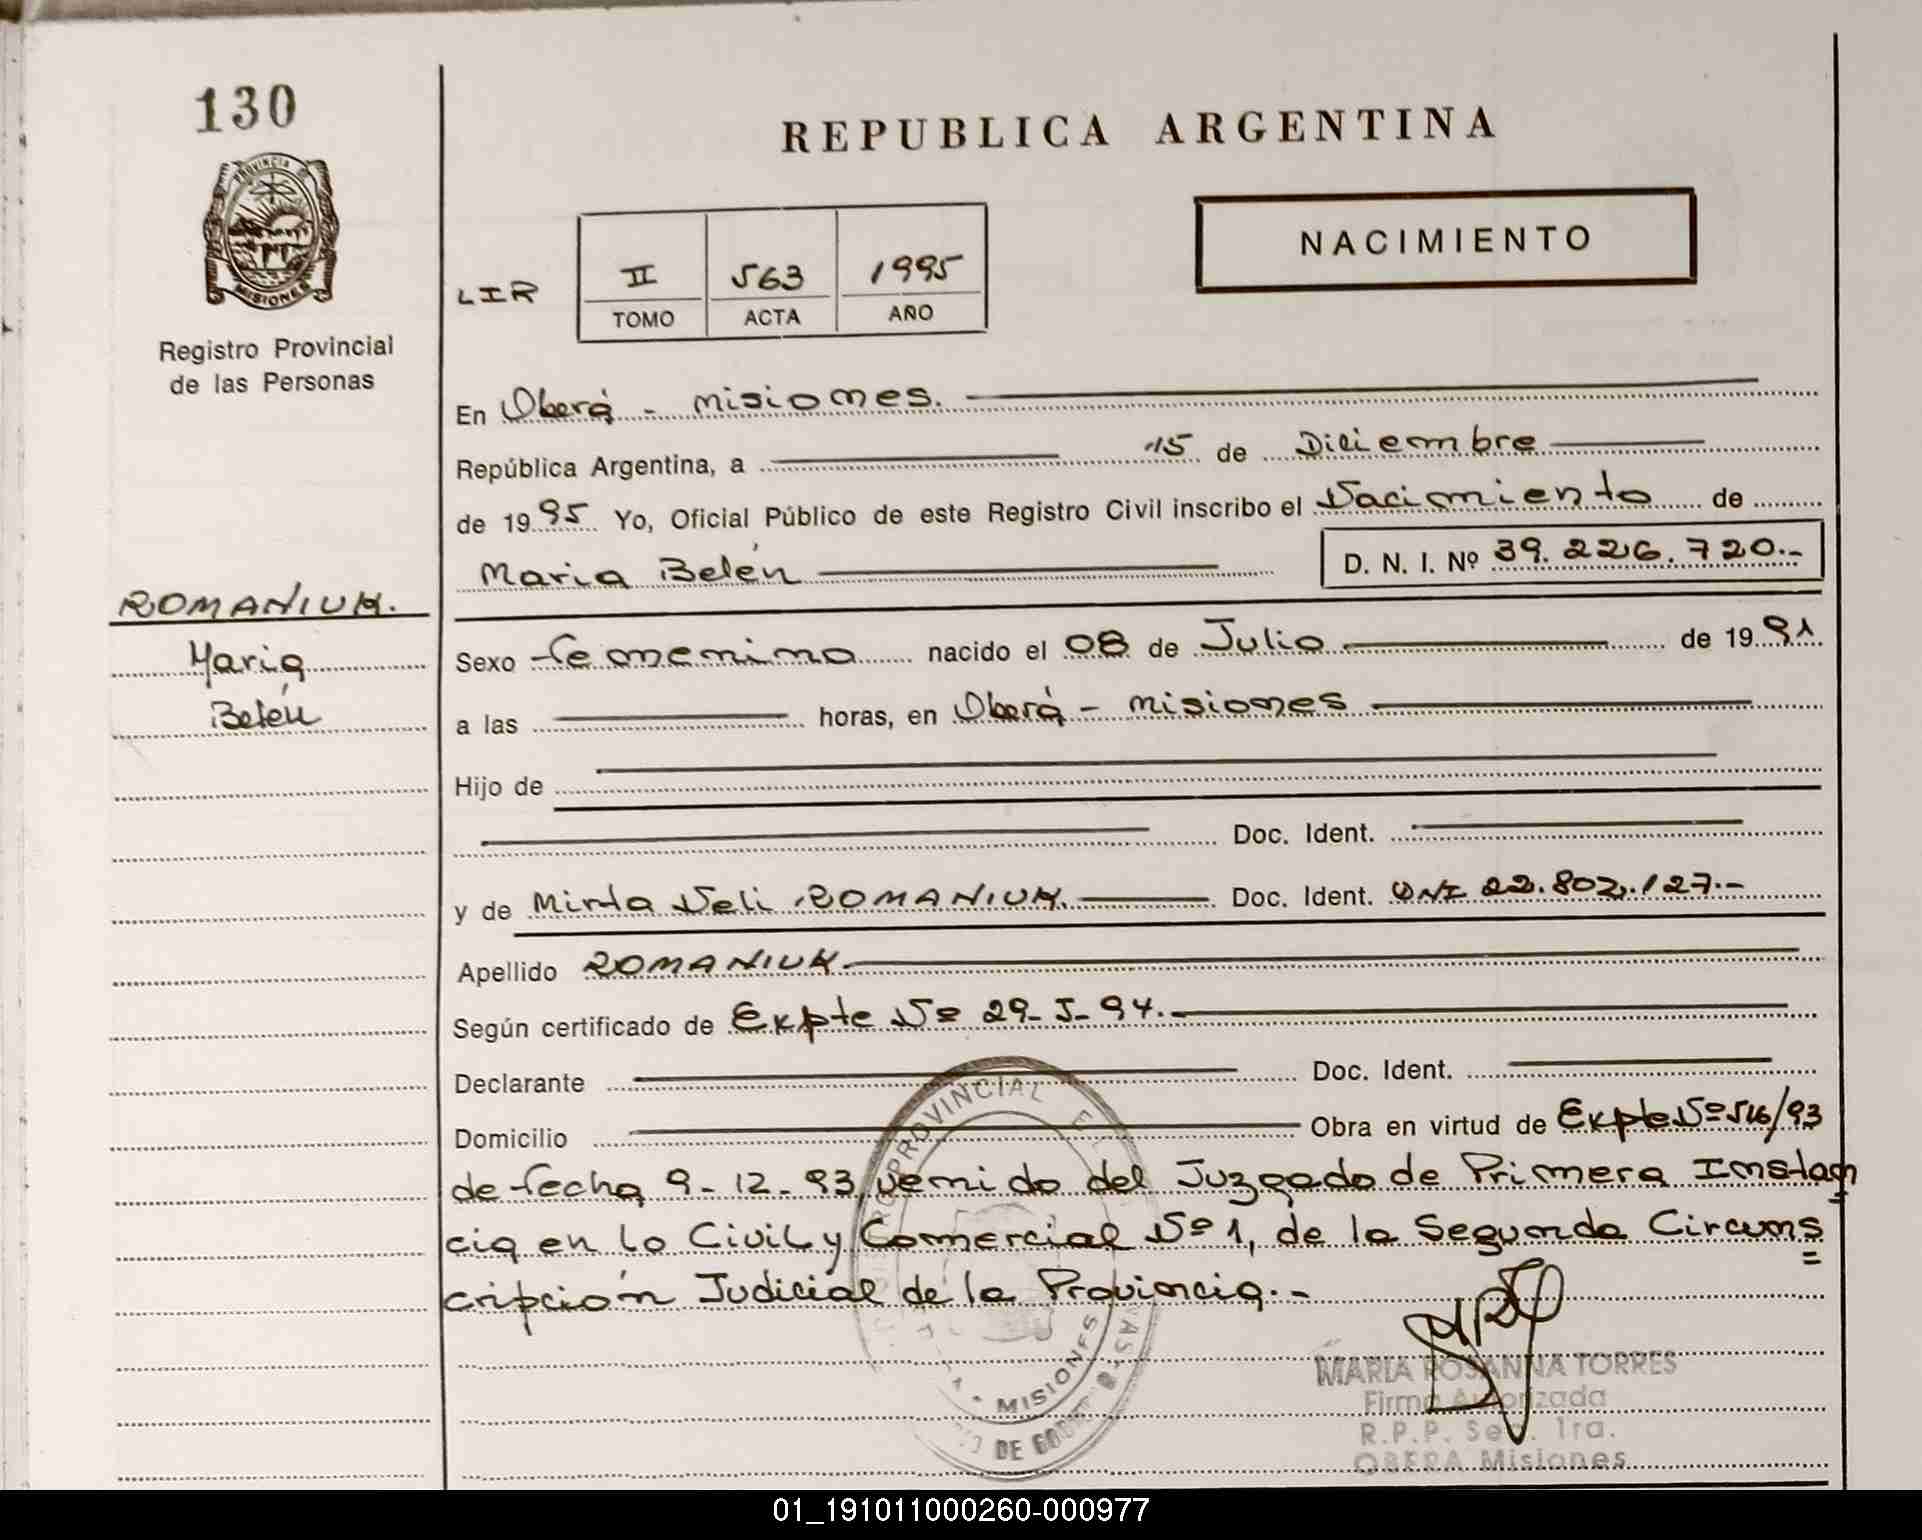 130
REPUBLICA ARGENTINA
PROVINCIA DE
MISIONES
Registro Provincial
de las Personas
NACIMIENTO
LIR
II 563 1995
TOMO ACTA AÑO
En Oberá - Misiones.
República Argentina, a 15 de Diciembre
de 1995 Yo, Oficial Público de este Registro Civil inscribo el Nacimiento de
Maria Belén D. N. I. Nº 39.226.720.-
ROMANIUK.
Maria
Belén
Sexo femenino nacido el 08 de Julio de 1991
a las horas, en Oberá - Misiones
Hijo de
Doc. Ident.
y de Mirta Neli ROMANIUK. Doc. Ident. DNI 22.802.127.-
Apellido ROMANIUK.
Según certificado de Expte Nº 29-J-94.-
Declarante Doc. Ident.
Domicilio Obra en virtud de Expte Nº 516/93
de fecha 9-12-93, venido del Juzgado de Primera Instan
cia en lo Civil y Comercial Nº 1, de la Segunda Circuns
cripción Judicial de la Provincia.-
PROVINCIAL
MISIONES
MARIA ROSANNA TORRES
Firma Autorizada
R.P.P. Sec. 1ra.
OBERA Misiones
01_191011000260-000977